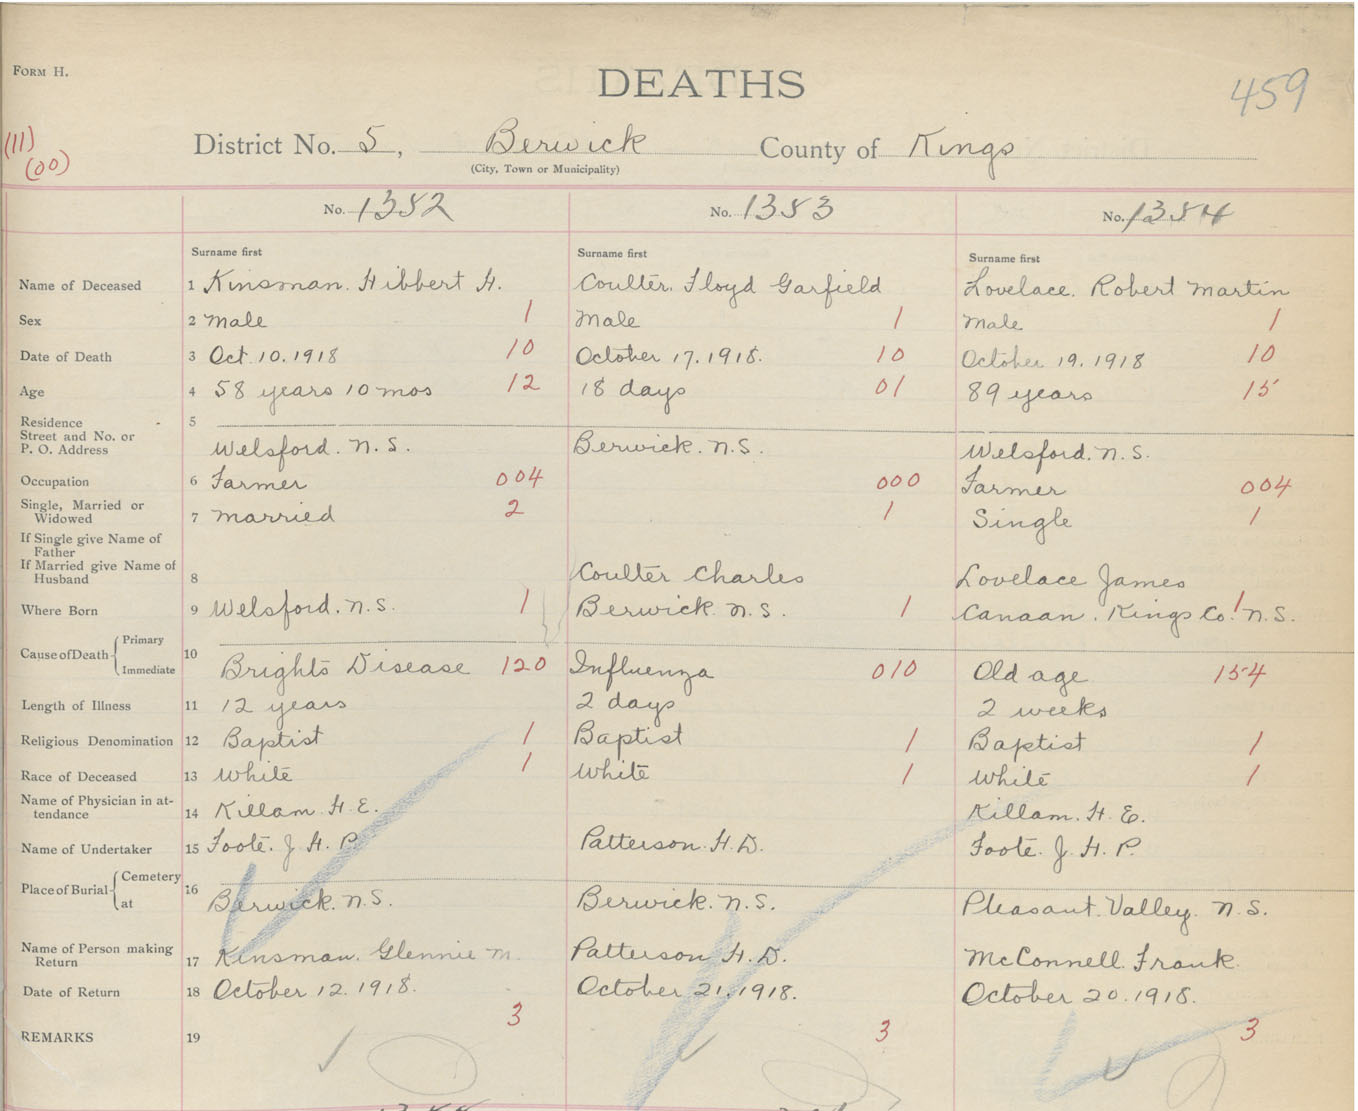 FORM H.
DEATHS
459
(11)
(00)
District No. 5, Berwick County of Kings
(City, Town or Municipality)
No. 1382 No. 1383 No. 1384
Surname first Surname first Surname first
Name of Deceased 1 Kinsman. Hibbert H. Coulter. Floyd Garfield Lovelace. Robert Martin
Sex 2 Male 1 Male 1 Male 1
Date of Death 3 Oct. 10. 1918 10 October 17. 1918. 10 October 19. 1918 10
Age 4 58 years 10 mos 12 18 days 01 89 years 15
Residence 5
Street and No. or
P. O. Address Welsford. N. S. Berwick. N. S. Welsford. N. S.
Occupation 6 Farmer 004 000 Farmer 004
Single, Married or
Widowed 7 Married 2 1 Single 1
If Single give Name of
Father
If Married give Name of
Husband 8 Coulter Charles Lovelace James
Where Born 9 Welsford. N. S. 1 Berwick. N. S. 1 Canaan. Kings Co. N. S. 1
Cause of Death Primary 10
Immediate Brights Disease 120 Influenza 010 Old age 154
Length of Illness 11 12 years 2 days 2 weeks
Religious Denomination 12 Baptist 1 Baptist 1 Baptist 1
Race of Deceased 13 White 1 White 1 White 1
Name of Physician in at-
tendance 14 Killam. H. E. Killam. H. E.
Name of Undertaker 15 Foote. J. H. P. Patterson. H. D. Foote. J. H. P.
Place of Burial Cemetery 16
at Berwick. N. S. Berwick. N. S. Pleasant. Valley. N. S.
Name of Person making
Return 17 Kinsman. Glennie M. Patterson H. D. McConnell. Frank.
Date of Return 18 October 12. 1918. October 21. 1918. October 20. 1918.
3 3 3
REMARKS 19